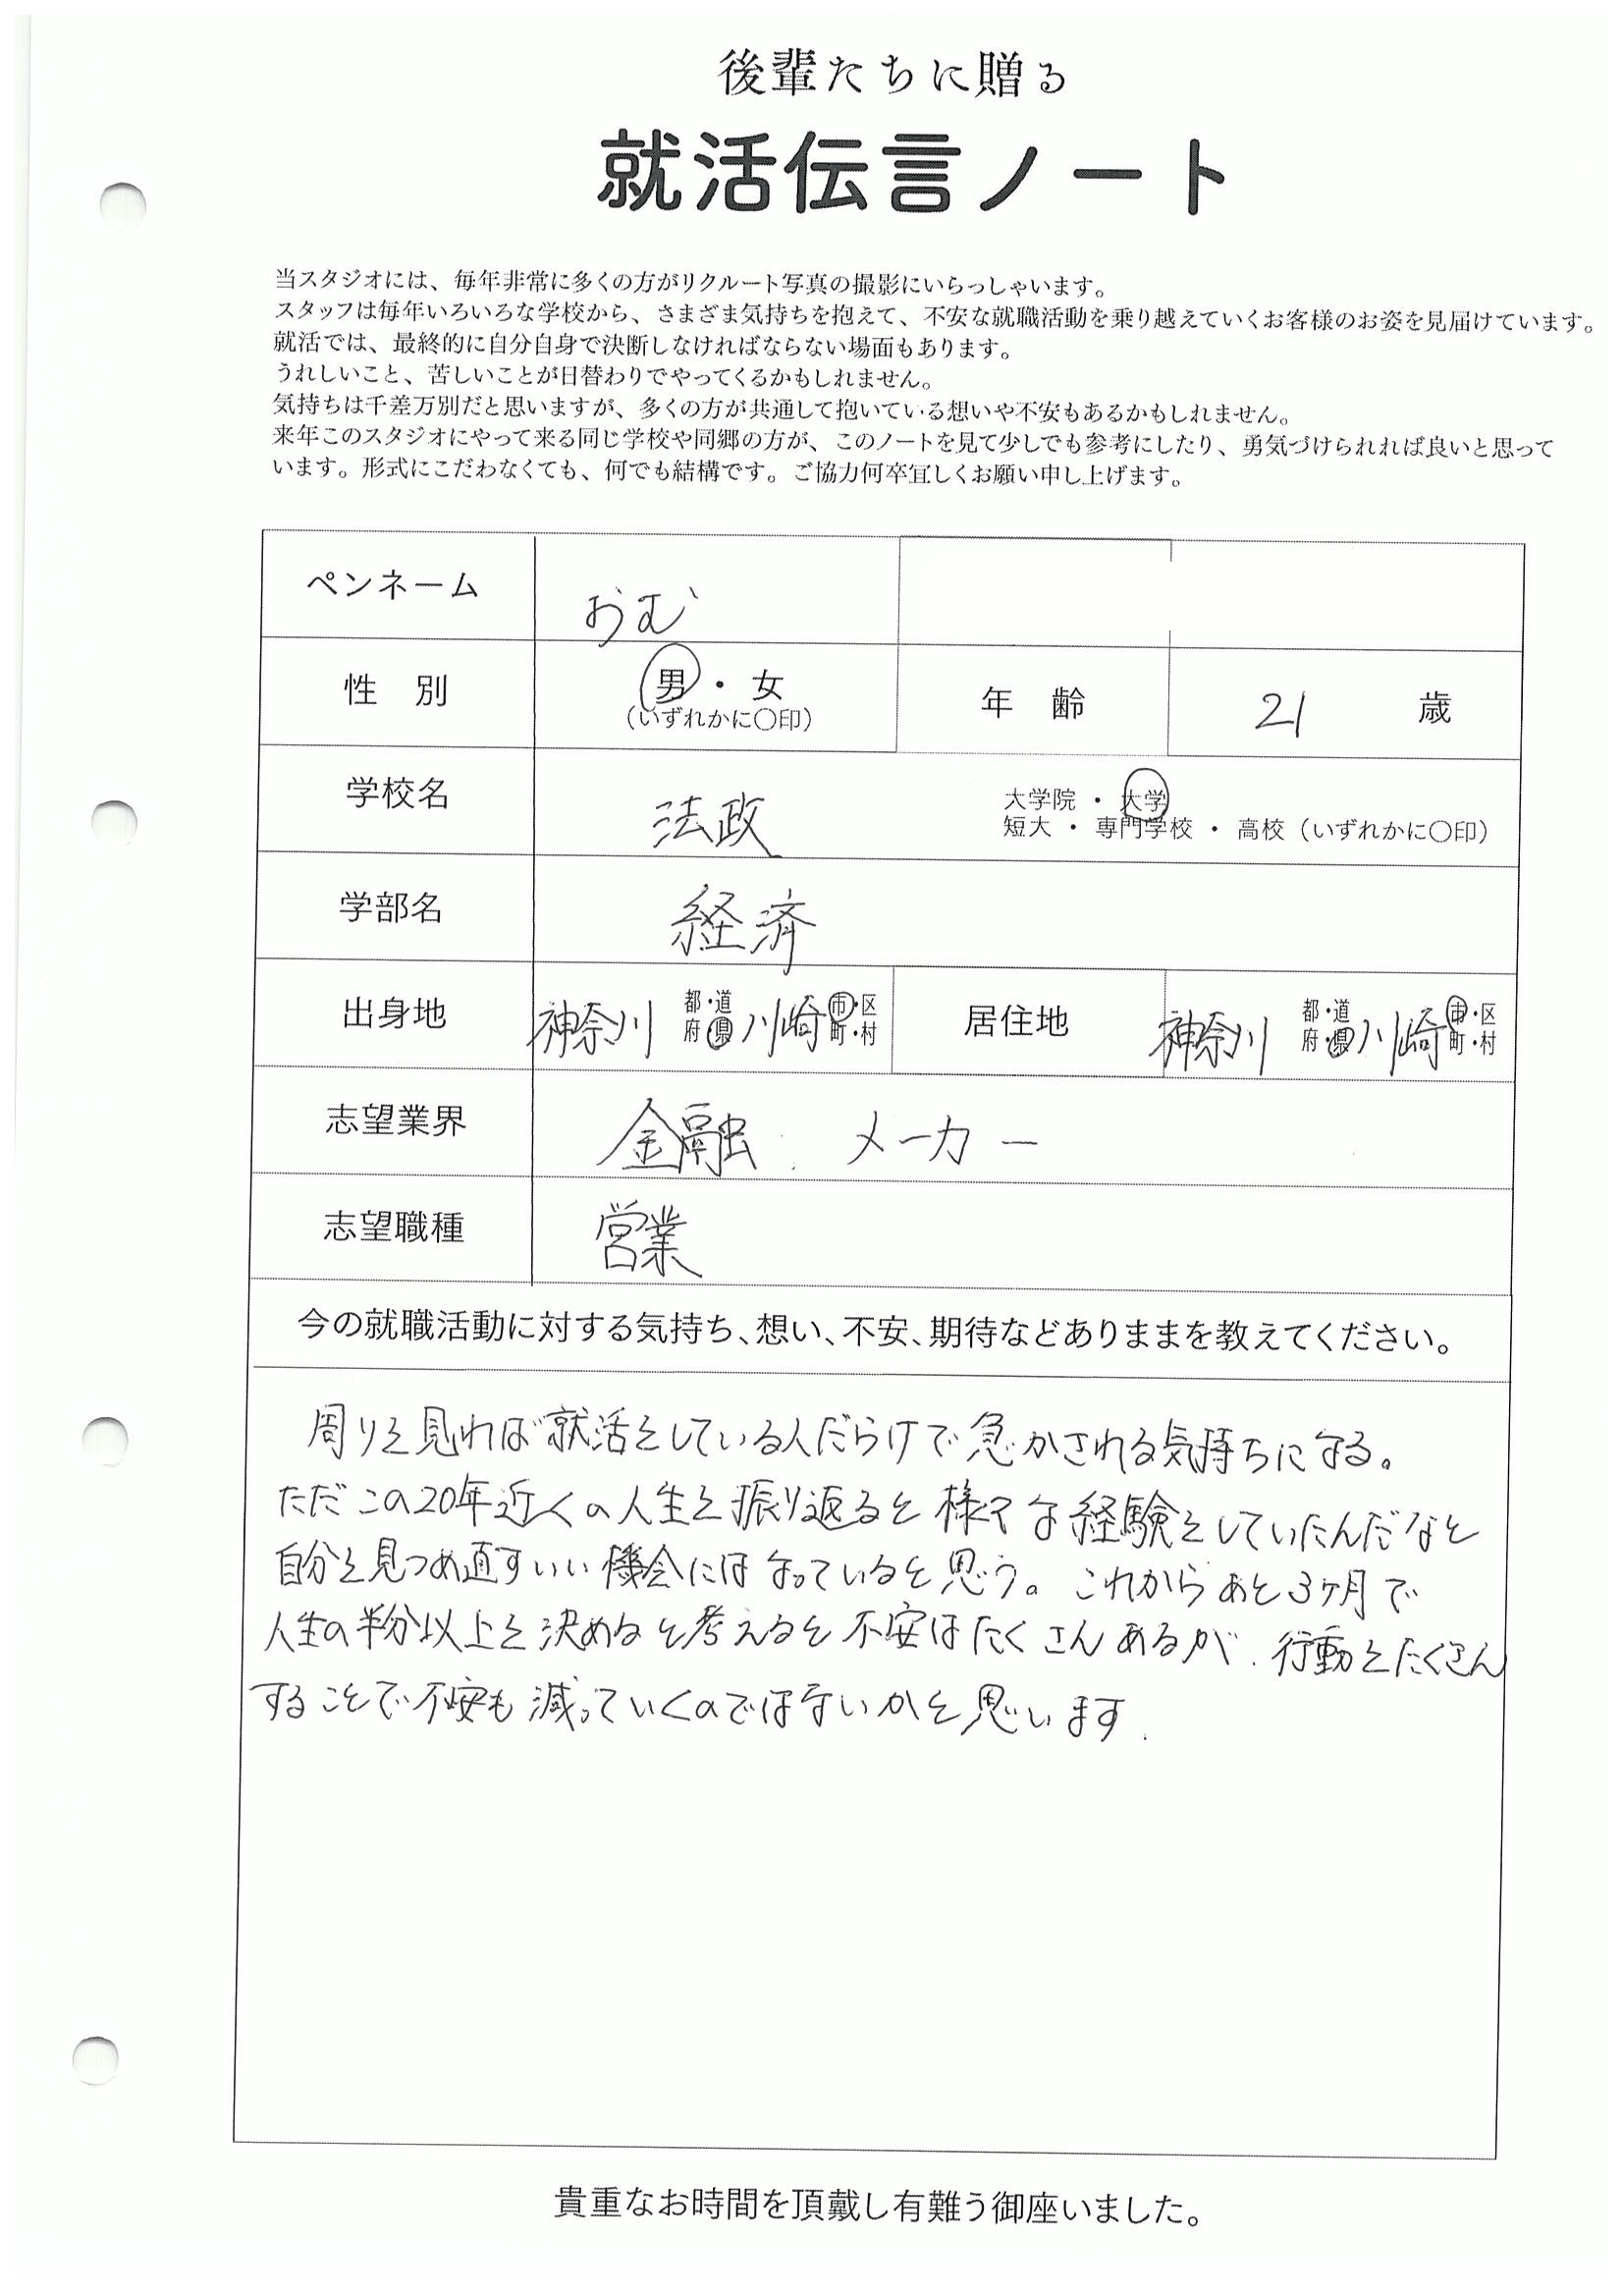 後輩たちに贈る
就活伝言ノート
当スタジオには、毎年非常に多くの方がリクルート写真の撮影にいらっしゃいます。
スタッフは毎年いろいろな学校から、さまざま気持ちを抱えて、不安な就職活動を乗り越えていくお客様のお姿を見届けています。
就活では、最終的に自分自身で決断しなければならない場面もあります。
うれしいこと、苦しいことが日替わりでやってくるかもしれません。
気持ちは千差万別だと思いますが、多くの方が共通して抱いている想いや不安もあるかもしれません。
来年このスタジオにやって来る同じ学校や同郷の方が、このノートを見て少しでも参考にしたり、勇気づけられれば良いと思って
います。形式にこだわなくても、何でも結構です。ご協力何卒宜しくお願い申し上げます。
ペンネーム おむ
性 別 男・女 年 齢 21 歳
(いずれかに〇印)
学校名 法政 大学院・大学
短大・専門学校・高校(いずれかに〇印)
学部名 経済
出身地 神奈川 都・道府・県 川崎 市・区町・村 居住地 神奈川 都・道府・県 川崎 市・区町・村
志望業界 金融. メーカー
志望職種 営業
今の就職活動に対する気持ち、想い、不安、期待などありままを教えてください。
周りを見れば就活をしている人だらけで急かされる気持ちになる。
ただこの20年近くの人生を振り返ると様々な経験をしていたんだなと
自分を見つめ直すいい機会にはなっていると思う。これからあと3ヶ月で
人生の半分以上を決めると考えると不安はたくさんあるが、行動をたくさん
することで不安も減っていくのではないかと思います.
貴重なお時間を頂戴し有難う御座いました。